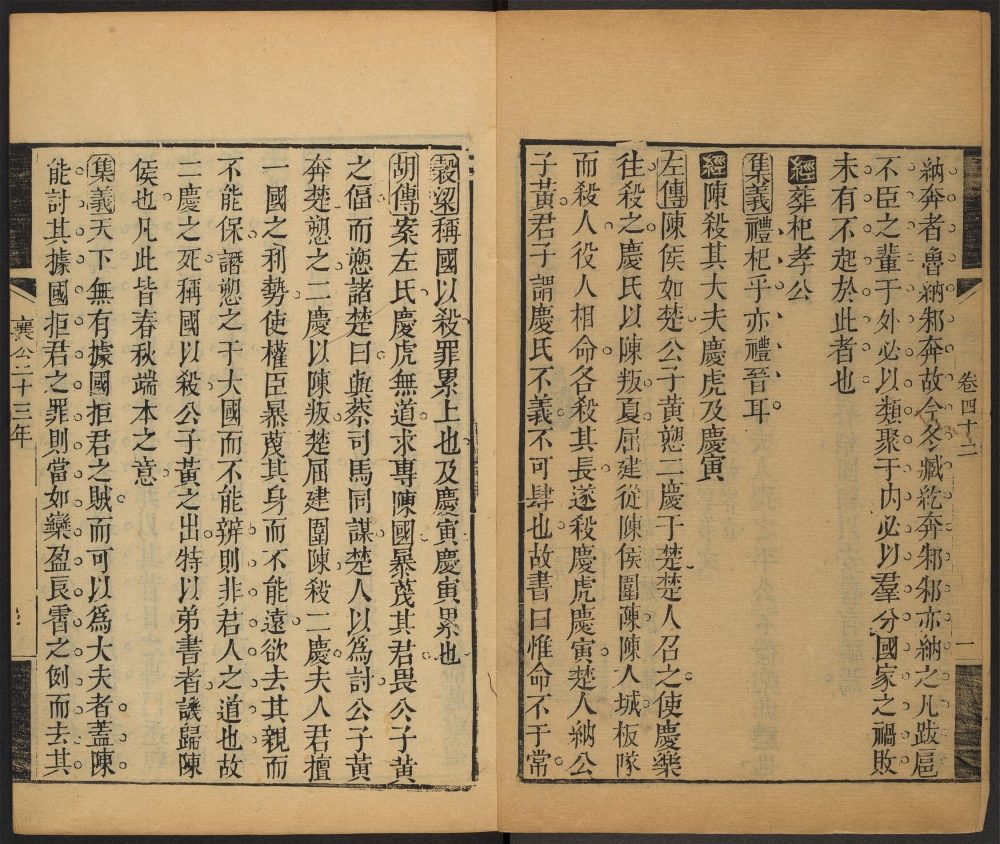 卷四十二
一
納奔者魯納邾奔故今冬臧紇奔邾邾亦納之凡跋扈
不臣之輩于外必以類聚于內必以羣分國家之禍敗
未有不起於此者也
經葬杞孝公
集義禮杞乎亦禮晉耳
經陳殺其大夫慶虎及慶寅
左傳陳侯如楚公子黃愬二慶于楚楚人召之使慶樂
往殺之慶氏以陳叛夏屈建從陳侯圍陳陳人城板隊
而殺人役人相命各殺其長遂殺慶虎慶寅楚人納公
子黃君子謂慶氏不義不可肆也故書曰惟命不于常
穀梁稱國以殺罪累上也及慶寅慶寅累也
胡傳案左氏慶虎無道求專陳國暴蔑其君畏公子黃
之偪而愬諸楚曰與蔡司馬同謀楚人以為討公子黃
奔楚愬之二慶以陳叛楚屈建圍陳殺二慶夫人君擅
一國之利勢使權臣暴蔑其身而不能遠欲去其親而
不能保譖愬之于大國而不能辨則非君人之道也故
二慶之死稱國以殺公子黃之出特以弟書者譏歸陳
侯也凡此皆春秋端本之意
集義天下無有據國拒君之賊而可以爲大夫者蓋陳
能討其據國拒君之罪則當如欒盈良霄之例而去其
襄公二十三年